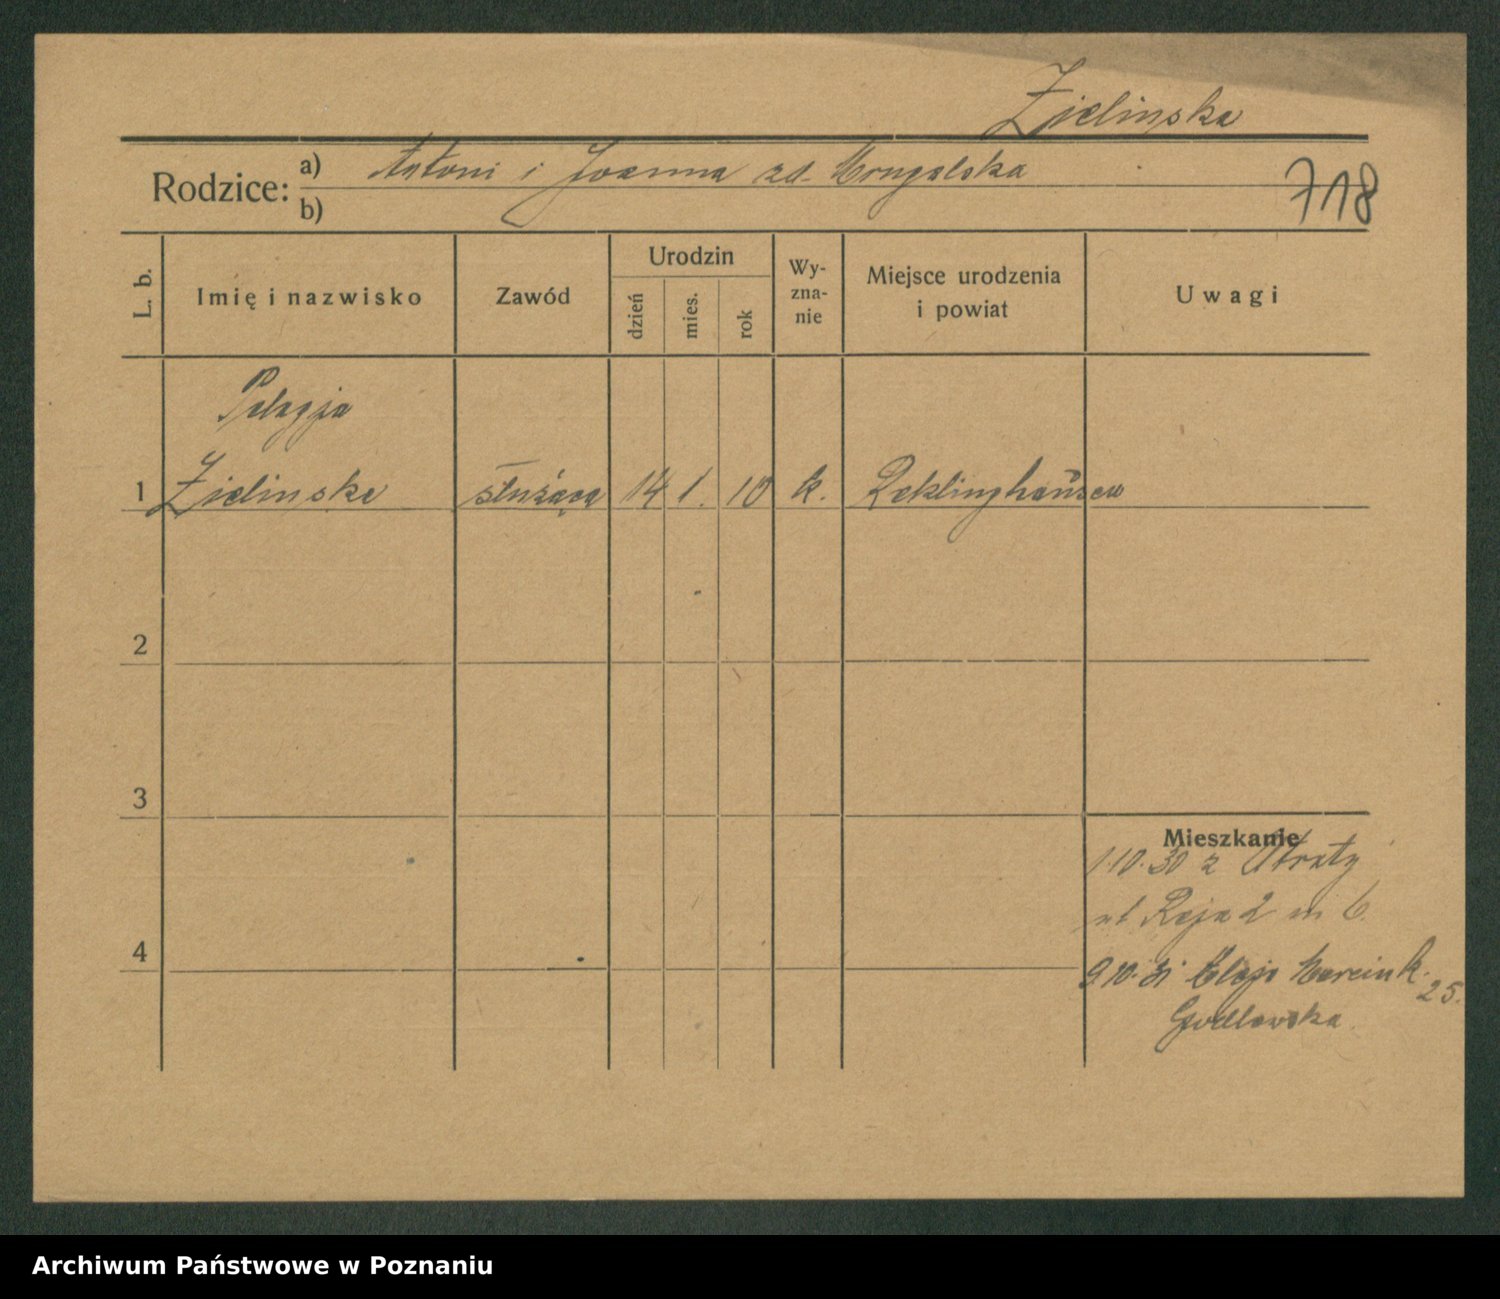 Zielinska
Rodzice:
a) Antoni i Joanna zd. Mrugalska
b)
718
L. b.
Imię i nazwisko
Zawód
Urodzin
dzień
mies.
rok
Wy-
zna-
nie
Miejsce urodzenia
i powiat
Uwagi
Pelagja
1 Zielinska służąca 14 1. 10 k. Reklinghausen
2
3
Mieszkanie
1.10.30 z Utraty
ul Reja 2 m 6.
4
9.10.31 Aleje Marcink. 25.
Godlewska
Archiwum Państwowe w Poznaniu